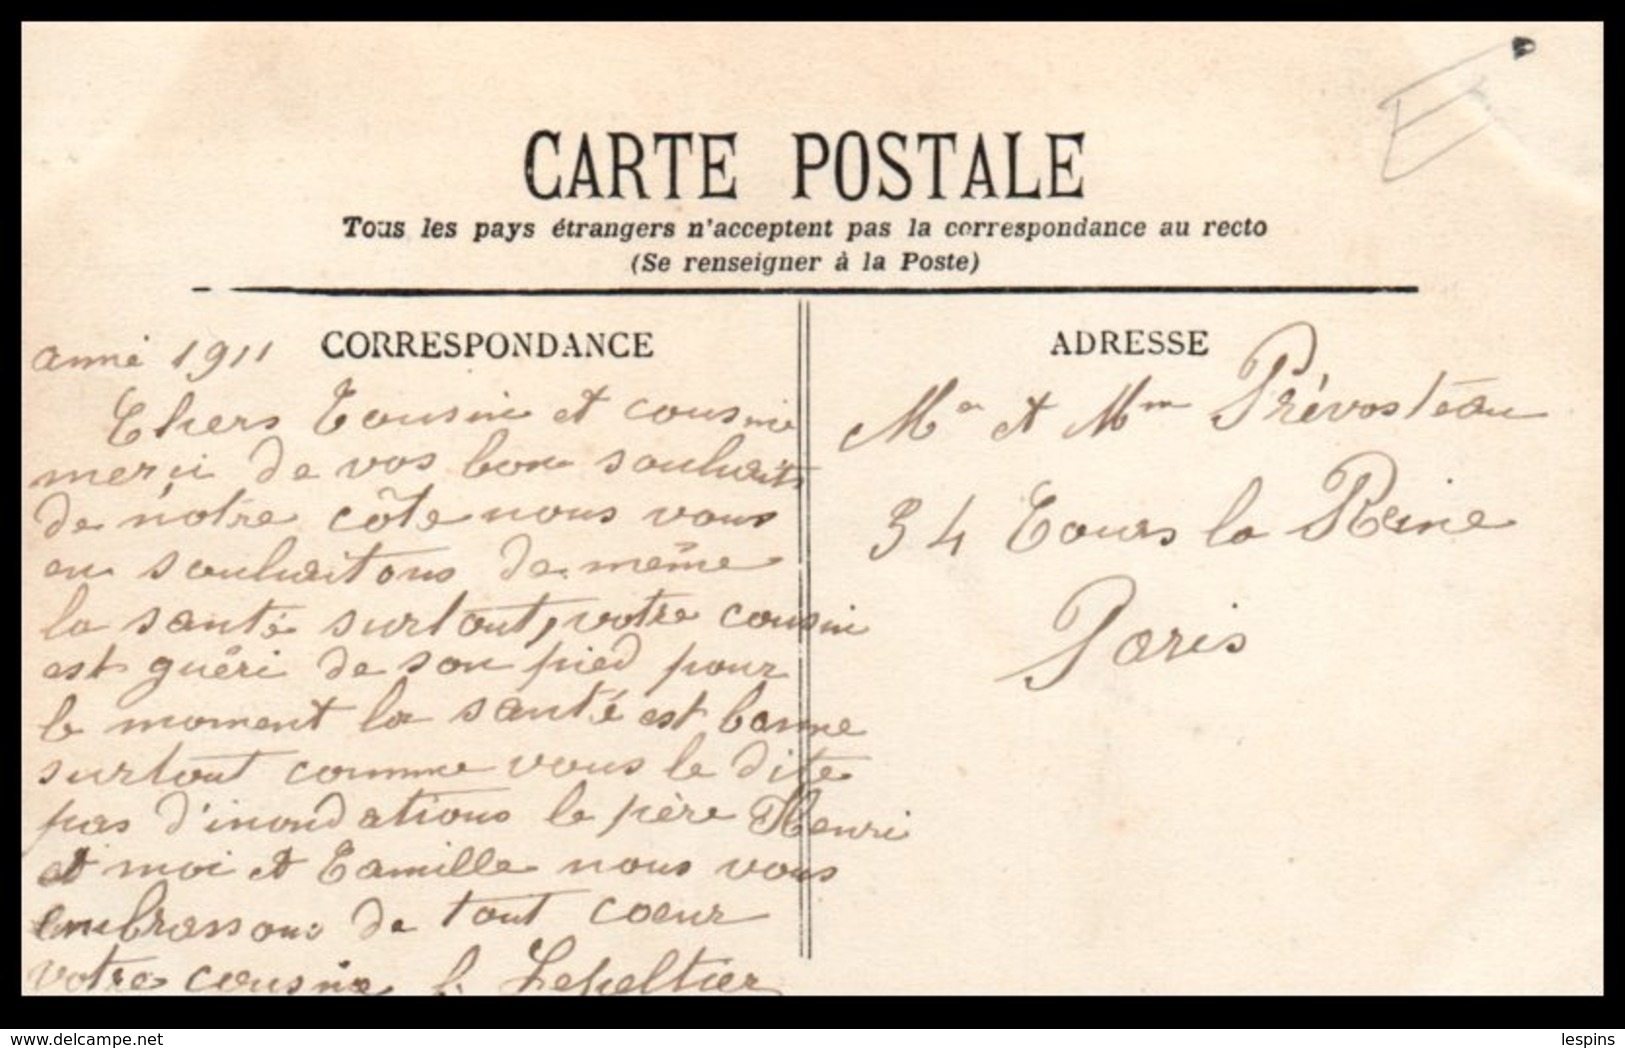 CARTE POSTALE
Tous les pays étrangers n'acceptent pas la correspondance au recto
(Se renseigner à la Poste)
CORRESPONDANCE
anné 1911
Chers Cousin et cousine
merci de vos bon souhaits
de nôtre côte nous vous
en souhaitons de même
la santé surtout, votre cousin
est guéri de son pied pour
le moment la santé est bonne
surtout comme vous le dite
pas d'inondations le père Henri
et moi et Camille nous vous
embrassons de tout coeur
votre cousine f. Lepeltier
ADRESSE
Mr et Mme Prévosteau
34 Cours la Reine
Paris
E
lespins
www.delcampe.net